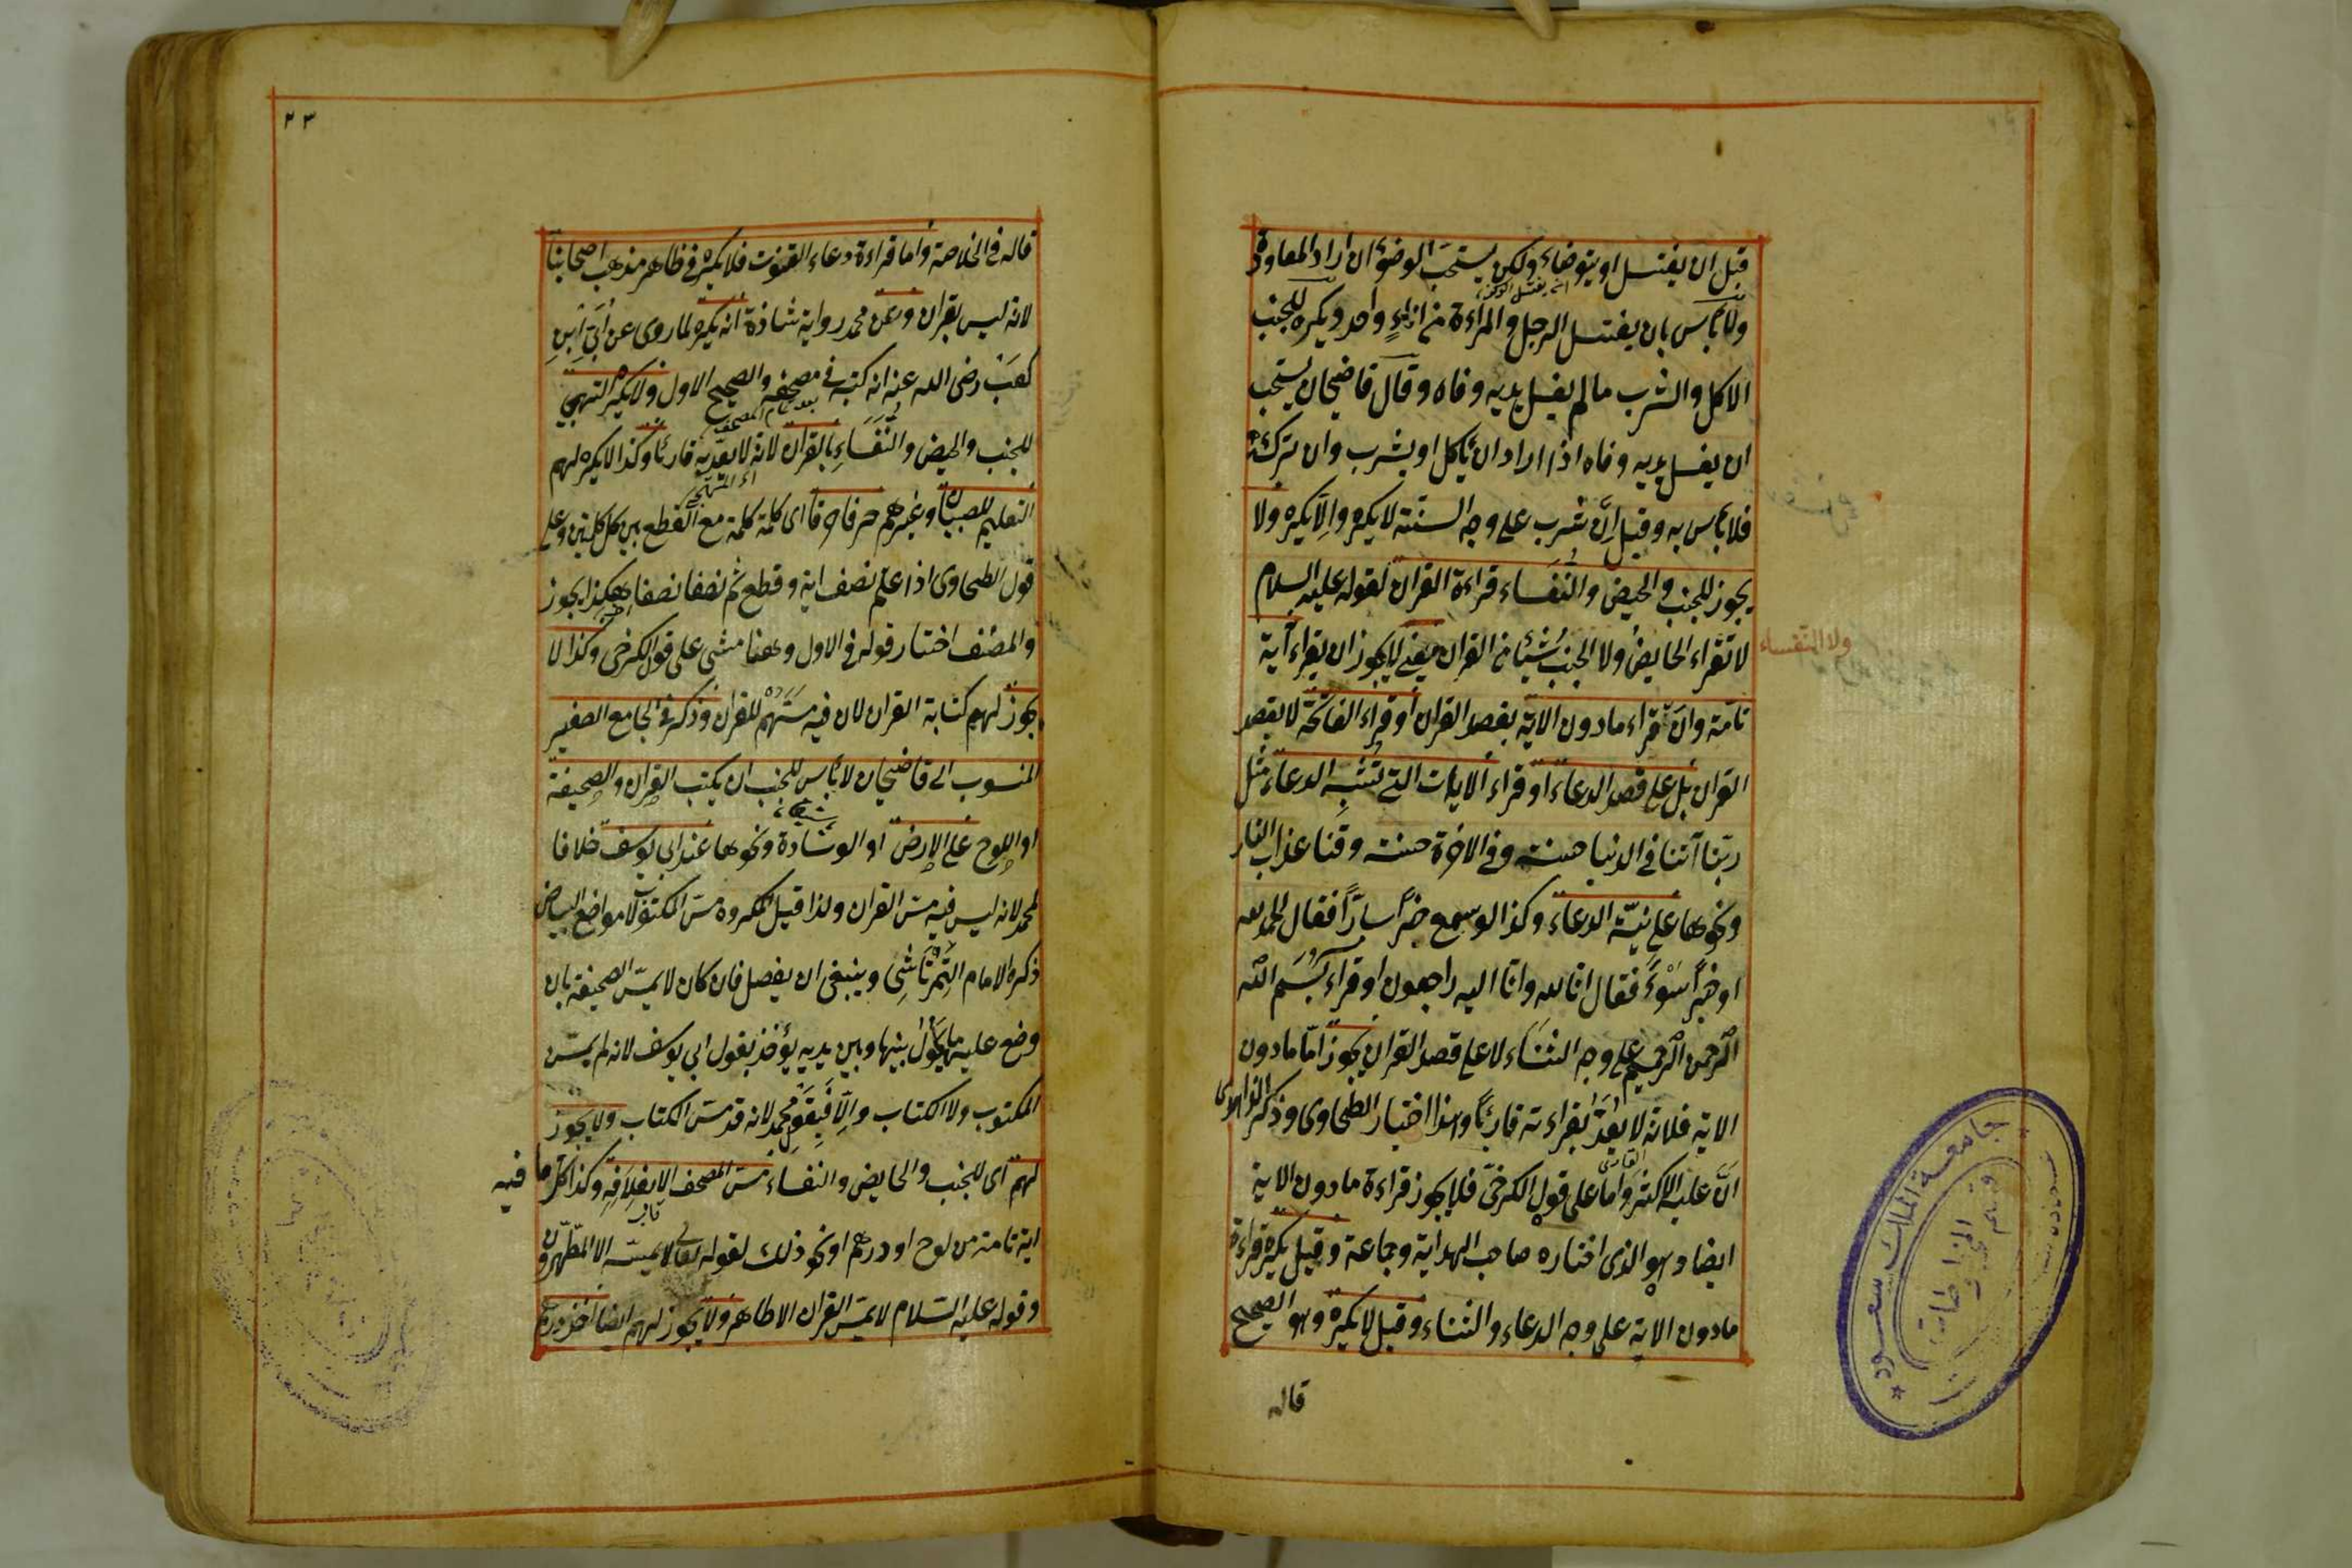 قبل ان يغتسل او يتوضاء ولكن يستحب الوضوء ان اراد المعاودة
ولا بأس بان يغتسل الرجل والمراءة من اناء واحد ويكره للجنب
الاكل والشرب مالم يغسل يديه وفاه وقال قاضيخان يستحب
ان يغسل يديه وفاه اذا اراد ان يأكل او يشرب وان تركه
فلا بأس به وقيل ان شرب على وجه السنة لا يكره والا يكره ولا
يجوز للجنب والحيض والنفساء قراءة القران لقوله عليه السلام
لا تقراء الحايض ولا الجنب شيئا من القران يعنى لا يجوز ان يقراء آية
ولا النفساء
تامة وان قراء مادون الاية بقصد القران أو قراء الفاتحة لا بقصد
القران بل على قصد الدعاء او قراء الايات التى تشبه الدعاء مثل
ربنا آتنا فى الدنيا حسنة وفى الاخرة حسنة وقنا عذاب النار
ونحوها على نية الدعاء وكذا لو سمع خبرا سارا فقال الحمد لله
او خبرا سوء فقال انا لله وانا اليه راجعون او قراء بسم الله
الرحمن الرحيم على وجه الثناء لا على قصد القران يجوز اما مادون
الاية فلانه لا يعد بقراءته قارئا وهذا اختيار الطحاوى وذكر الزاهدى
ان عليه الاكثر واما على قول الكرخى فلا يجوز قراءة مادون الاية
ايضا وهو الذى اختاره صاحب الهداية وجماعة وقيل يكره قراءة
مادون الاية على وجه الدعاء والثناء وقيل لا يكره وهو الصحيح
قاله
٢٣
قاله فى الخلاصة وأما قراءة دعاء القنوت فلا يكره فى ظاهر مذهب اصحابنا
لانه ليس بقران وعن محمد رواية شاذة انه يكره لما روى عن أبى ابن
كعب رضى الله عنه انه كتبه فى مصحفه والصحيح الاول ولا يكره التهجى
للجنب والحيض والنفساء بالقران لانه لا يعد به قارئا وكذا لا يكره لهم
اى التهجى
التعليم للصبيان وغيرهم حرفا حرفا اى كلمة كلمة مع القطع بين كل كلمتين وعلى
قول الطحاوى اذا علم نصف اية وقطع ثم نصفا نصفا هكذا يجوز
والمصنف اختار قوله فى الاول وههنا مشى على قول الكرخى وكذا لا
يجوز لهم كتابة القران لان فيه مسهم للقران وذكر فى الجامع الصغير
المنسوب الى قاضيخان لا بأس للجنب ان يكتب القران والصحيفة
او اللوح على الارض او الوسادة ونحوها عند ابى يوسف خلافا
لمحمد لانه ليس فيه مس القران ولذا قيل المكروه مس المكتوب لا مواضع البياض
ذكره الامام التمرتاشى وينبغى ان يفصل فان كان لا يمس الصحيفة بان
وضع عليها ما يحول بينها وبين يديه يؤخذ بقول ابى يوسف لانه لم يمس
المكتوب ولا الكتاب والا فبقول محمد لانه قد مس الكتاب ولا يجوز
لهم اى للجنب والحايض والنفساء مس المصحف الا بغلافه وكذا كل ما فيه
اية تامة من لوح او درهم او نحو ذلك لقوله تعالى لا يمسه الا المطهرون
وقوله عليه السلام لا يمس القران الا طاهر ولا يجوز لهم ايضا اخذ درهم
جامعة الملك سعود
قسم المخطوطات